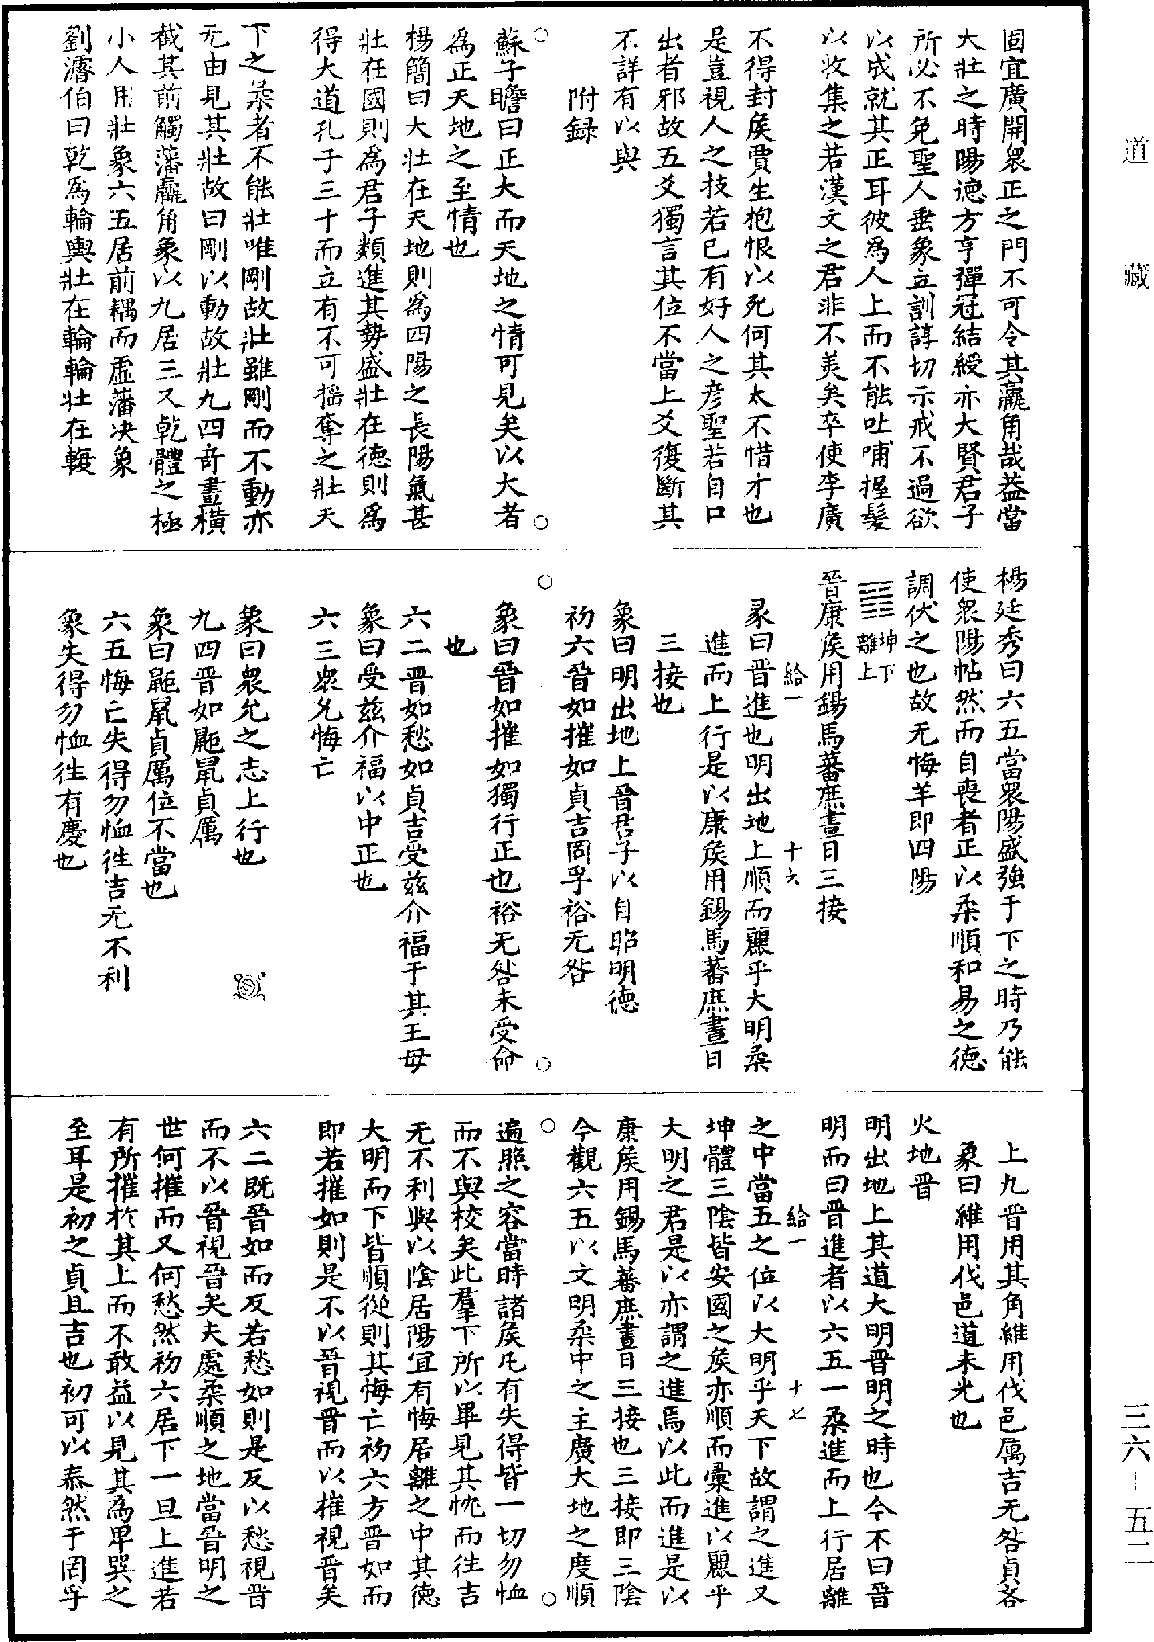 固宜廣開衆正之門不可令其羸角哉益當
大壯之時陽德方亨彈冠結綬亦大賢君子
所必不免聖人垂象立訓諄切示戒不過欲
以成就其正耳彼爲人上而不能吐哺握髮
以收集之若漢文之君非不美矣卒使李廣
不得封矦賈生抱恨以死何其太不惜才也
是豈視人之技若巳有好人之彥聖若自口
出者邪故五爻獨言其位不當上爻復斷其
不詳有以與
附録
蘇子瞻曰正大而天地之情可見矣以大者
爲正天地之至情也
楊簡曰大壯在天地則爲四陽之長陽氣甚
壯在國則爲君子類進其勢盛壯在德則爲
得大道孔子三十而立有不可揺奪之壯天
下之柔者不能壯唯剛故壯雖剛而不動亦
无由見其壯故曰剛以動故壯九四竒畫横
截其前觸藩羸角象以九居三又乾體之極
小人用壯象六五居前耦而虛藩决象
劉濬伯曰乾爲輪輿壯在輪輪壯在輹
楊廷秀曰六五當衆陽盛強于下之時乃能
使衆陽帖然而自喪者正以柔順和易之德
調伏之也故无悔羊即四陽
坤下
離上
晉康矦用錫馬蕃庶晝日三接
給一 十六
彖曰晉進也明出地上順而麗乎大明柔
進而上行是以康矦用錫馬蕃庶晝日
三接也
象曰明出地上晉君子以自昭明德
初六晉如摧如貞吉罔孚裕无咎
象曰晉如摧如獨行正也裕无咎未受命
也
六二晉如愁如貞吉受兹介福于其王母
象曰受兹介福以中正也
六三衆允悔亡
象曰衆允之志上行也
九四晉如鼫鼠貞厲
象曰鼫鼠貞厲位不當也
六五悔亡失得勿恤徃吉无不利
象失得勿恤徃有慶也
上九晉用其角維用伐邑厲吉无咎貞吝
象曰維用伐邑道未光也
火地晉
明出地上其道大明晉明之時也今不曰晉
明而曰晉進者以六五一柔進而上行居離
給一 十七
之中當五之位以大明乎天下故謂之進又
坤體三陰皆安國之矦亦順而彙進以麗乎
大明之君是以亦謂之進焉以此而進是以
康矦用錫馬蕃庶晝日三接也三接即三陰
今觀六五以文明柔中之主廣大地之度順
遍照之容當時諸矦凡有失得皆一切勿恤
而不與校矣此羣下所以畢見其忱而徃吉
无不利與以陰居陽宜有悔居離之中其德
大明而下皆順從則其悔亡初六方晉如而
即若摧如則是不以晉視晉而以摧視晉矣
六二既晉如而反若愁如則是反以愁視晉
而不以晉視晉矣夫處柔順之地當晉明之
世何摧而又何愁然初六居下一旦上進若
有所摧於其上而不敢益以見其爲卑巽之
至耳是初之貞且吉也初可以泰然于罔孚
道藏
三六－五二